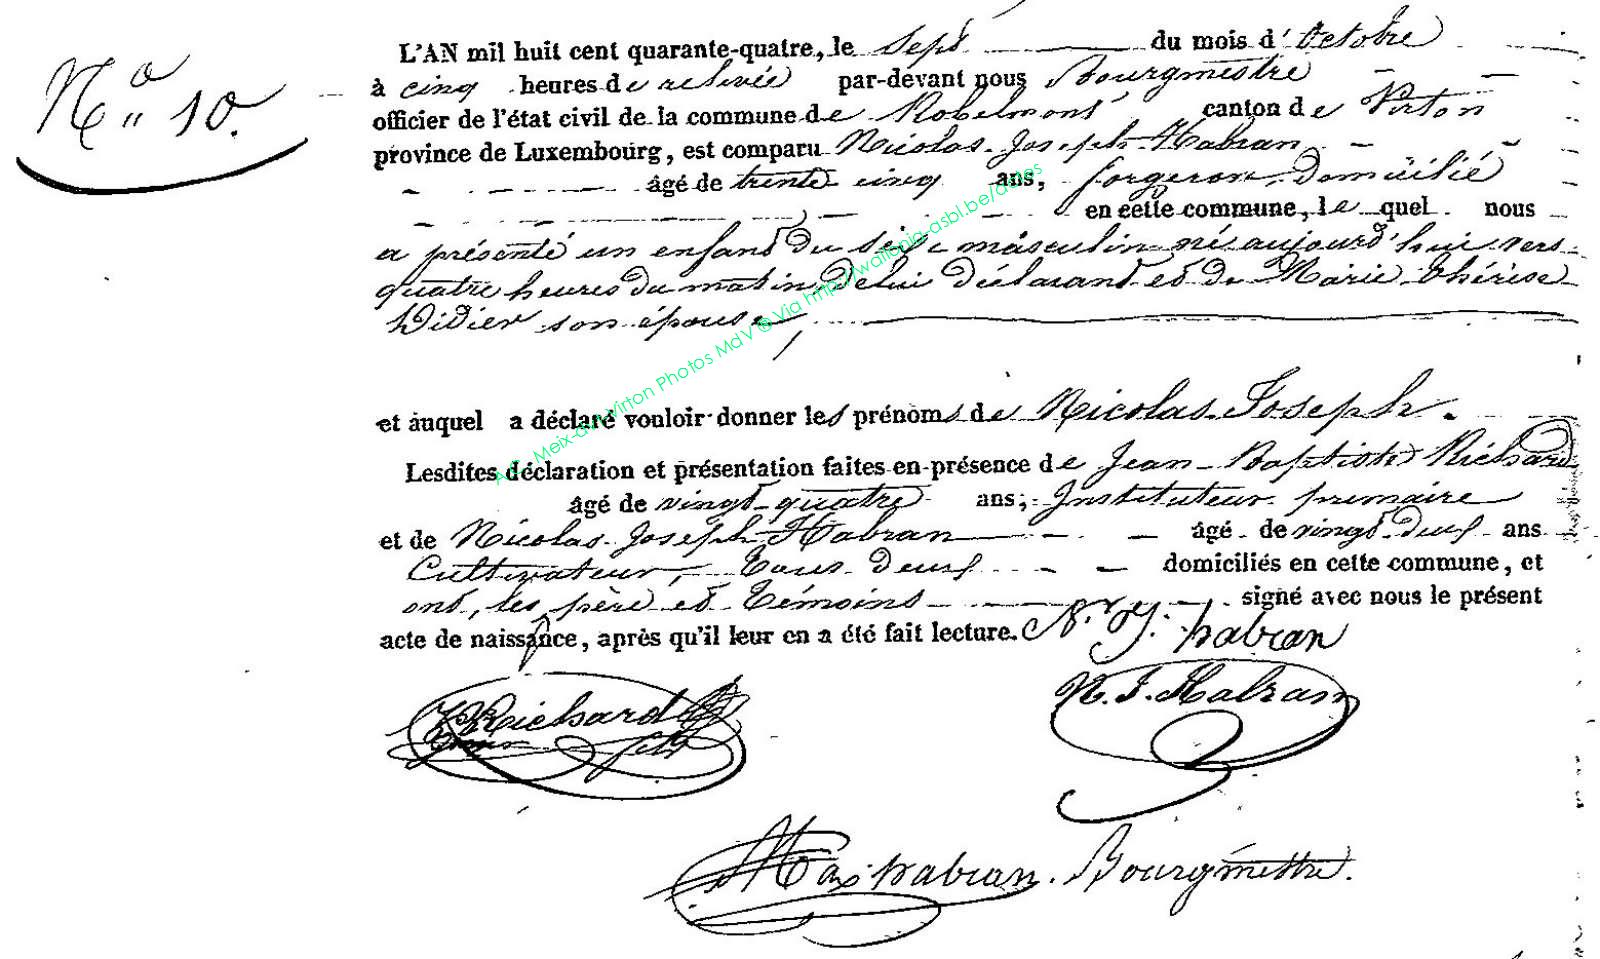 Nº 10.
L'AN mil huit cent quarante-quatre, le sept du mois d'Octobre
à cinq heures de relevée par-devant nous Bourgmestre
officier de l'état civil de la commune de Robelmont canton de Virton
province de Luxembourg, est comparu Nicolas Joseph Habran
âgé de trente cinq ans, forgeron, domicilié
en cette commune, lequel nous
a présenté un enfant du sexe masculin né aujourd'hui vers
quatre heures du matin, de lui déclarant et de Marie Thérèse
Didier son épouse,
et auquel a déclaré vouloir donner les prénoms de Nicolas Joseph.
Lesdites déclaration et présentation faites en présence de Jean-Baptiste Richard
âgé de vingt-quatre ans, Instituteur primaire
et de Nicolas Joseph Habran âgé de vingt deux ans
Cultivateur, Tous deux domiciliés en cette commune, et
ont, les père et témoins signé avec nous le présent
acte de naissance, après qu'il leur en a été fait lecture. N. J. habran
Richard N. J. Habran
Max habran. Bourgmestre.
Meix-dvt-Virton Photos MdV @ Via http://wallonia-asbl.be/actes